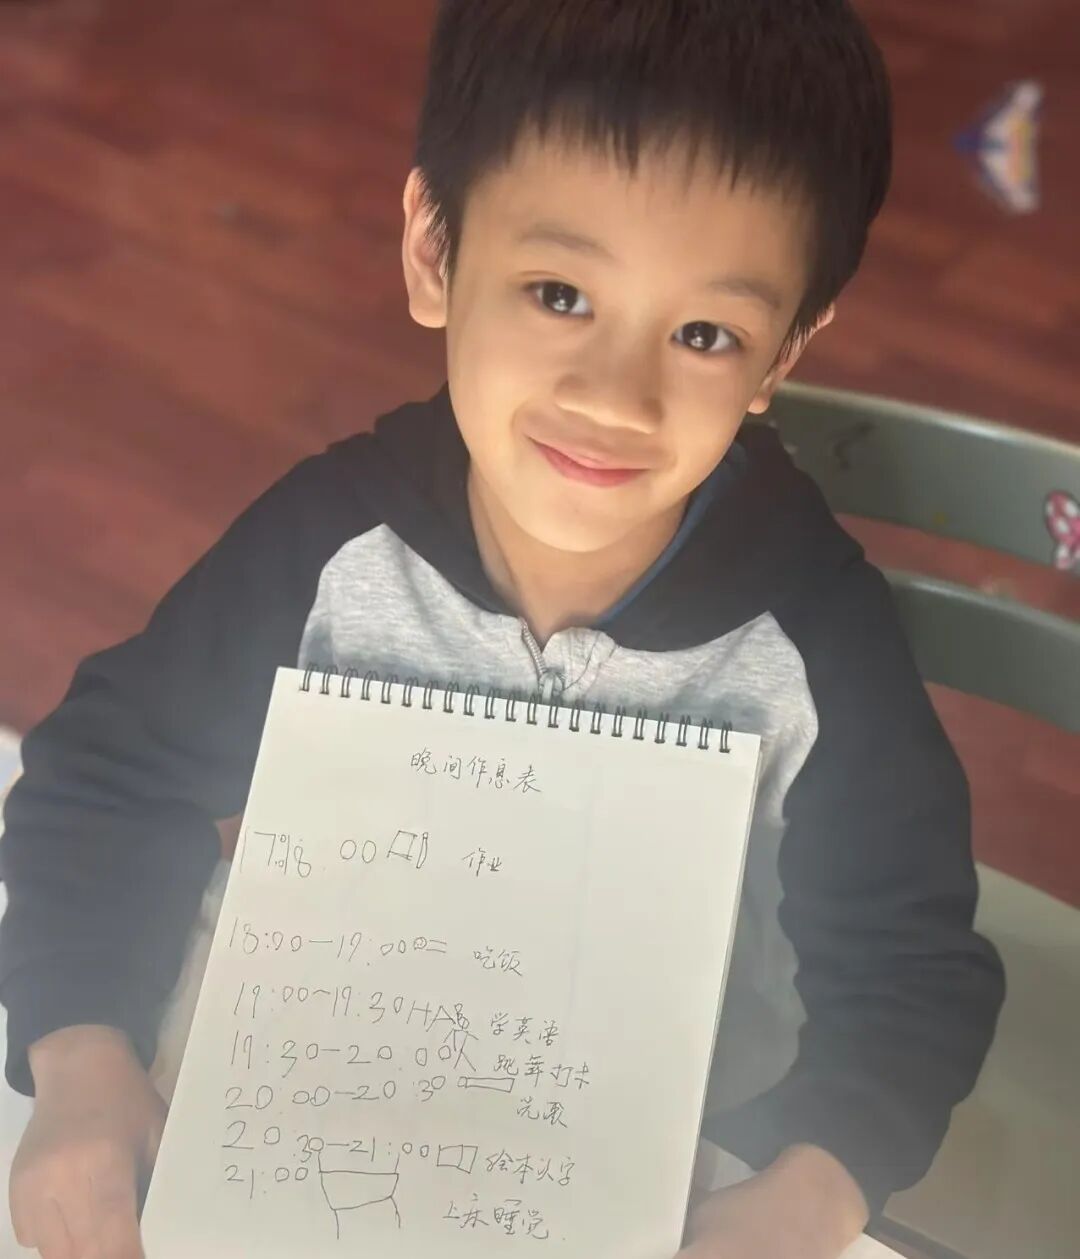 晚间作息表
17:00 18:00 作业
18:00—19:00 吃饭
19:00~19:30 HA 学英语
19:30—20:00 跳舞打卡
20:00—20:30 儿歌
20:30—21:00 绘本认字
21:00 上床睡觉.